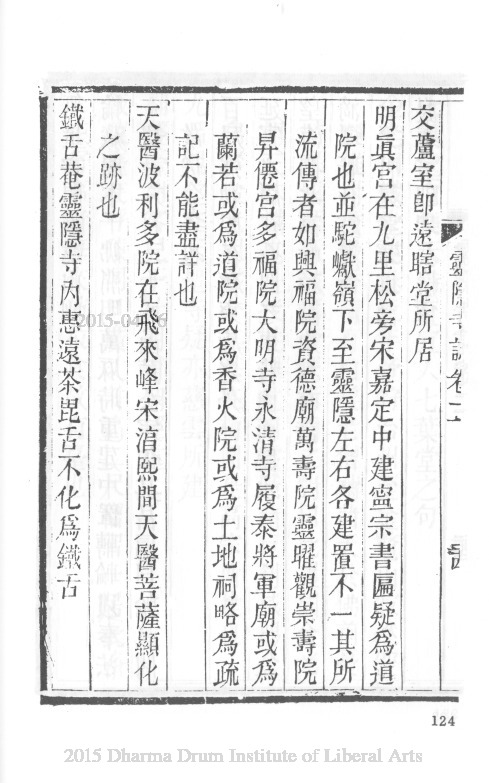 靈隱寺誌卷二
交蘆室卽遠瞎堂所居
明眞宮在九里松旁宋嘉定中建寧宗書匾疑爲道
院也並駝巘嶺下至靈隱左右各建置不一其所
流傳者如興福院資德廟萬壽院靈曜觀崇壽院
昇僊宮多福院大明寺永清寺履泰將軍廟或爲
蘭若或爲道院或爲香火院或爲土地祠略爲疏
記不能盡詳也
天醫波利多院在飛來峰宋淳熙間天醫菩薩顯化
之跡也
鐵舌菴靈隱寺內惠遠茶毘舌不化爲鐵舌
124
2015 Dharma Drum Institute of Liberal Arts